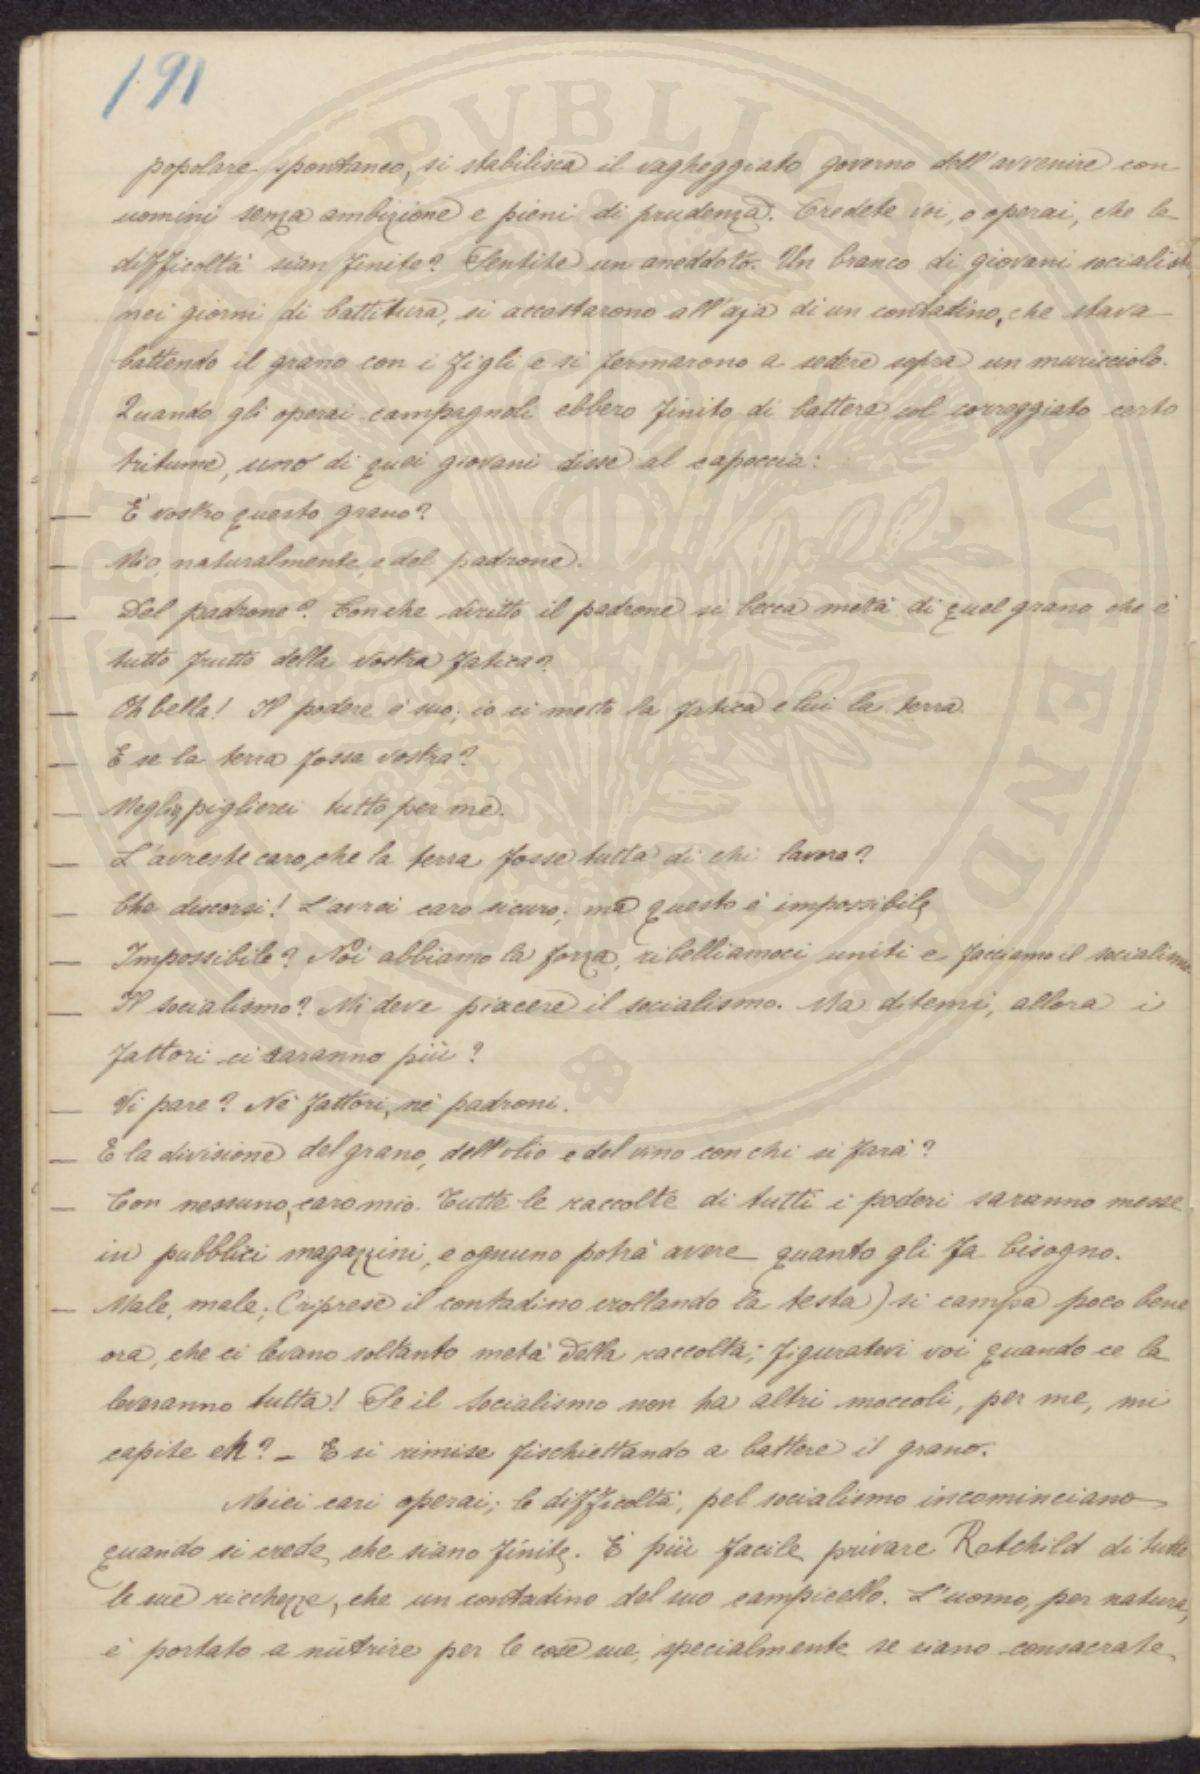 191
popolare spontaneo, si stabilisca il vagheggiato governo dell'avvenire con
uomini senza ambizione e pieni di prudenza. Credete voi, o operai, che le
difficoltà sian finite? Sentite un aneddoto. Un branco di giovani socialisti
nei giorni di battitura, si accostarono all'aja di un contadino, che stava
battendo il grano con i figli e si fermarono a sedere sopra un muricciolo.
Quando gli operai campagnoli ebbero finito di battere col correggiato certo
tritume, uno di quei giovani disse al capoccia:
— È vostro questo grano?
— Mio, naturalmente, e del padrone.
— Del padrone? Con che diritto il padrone si becca metà di quel grano che è
tutto frutto della vostra fatica?
— Oh bella! Il podere è suo; io ci metto la fatica e lui la terra.
— E se la terra fosse vostra?
— Meglio, piglierei tutto per me.
— L'avreste caro, che la terra fosse tutta di chi lavora?
— Che discorsi! L'avrei caro sicuro; ma questo è impossibile
— Impossibile? Noi abbiamo la forza, ribelliamoci uniti e facciamo il socialismo.
— Il socialismo? Mi deve piacere il socialismo. Ma ditemi, allora i
fattori ci saranno più?
— Vi pare? Nè fattori, nè padroni.
— E la divisione del grano, dell'olio e del vino con chi si farà?
— Con nessuno, caro mio. Tutte le raccolte di tutti i poderi saranno messe
in pubblici magazzini, e ognuno potrà avere quanto gli fa bisogno.
— Male, male; (riprese il contadino crollando la testa) si campa poco bene
ora, che ci levano soltanto metà della raccolta; figuratevi voi quando ce la
leveranno tutta! Se il socialismo non ha altri moccoli, per me, mi
capite eh? – E si rimise fischiettando a battere il grano.
Miei cari operai; le difficoltà, pel socialismo incominciano
quando si crede, che siano finite. È più facile privare Rotchild di tutte
le sue ricchezze, che un contadino del suo campicello. L'uomo, per natura,
è portato a nutrire per le cose sue, specialmente se siano consacrate
PATRIAE PVBLICAE AVGENDAE